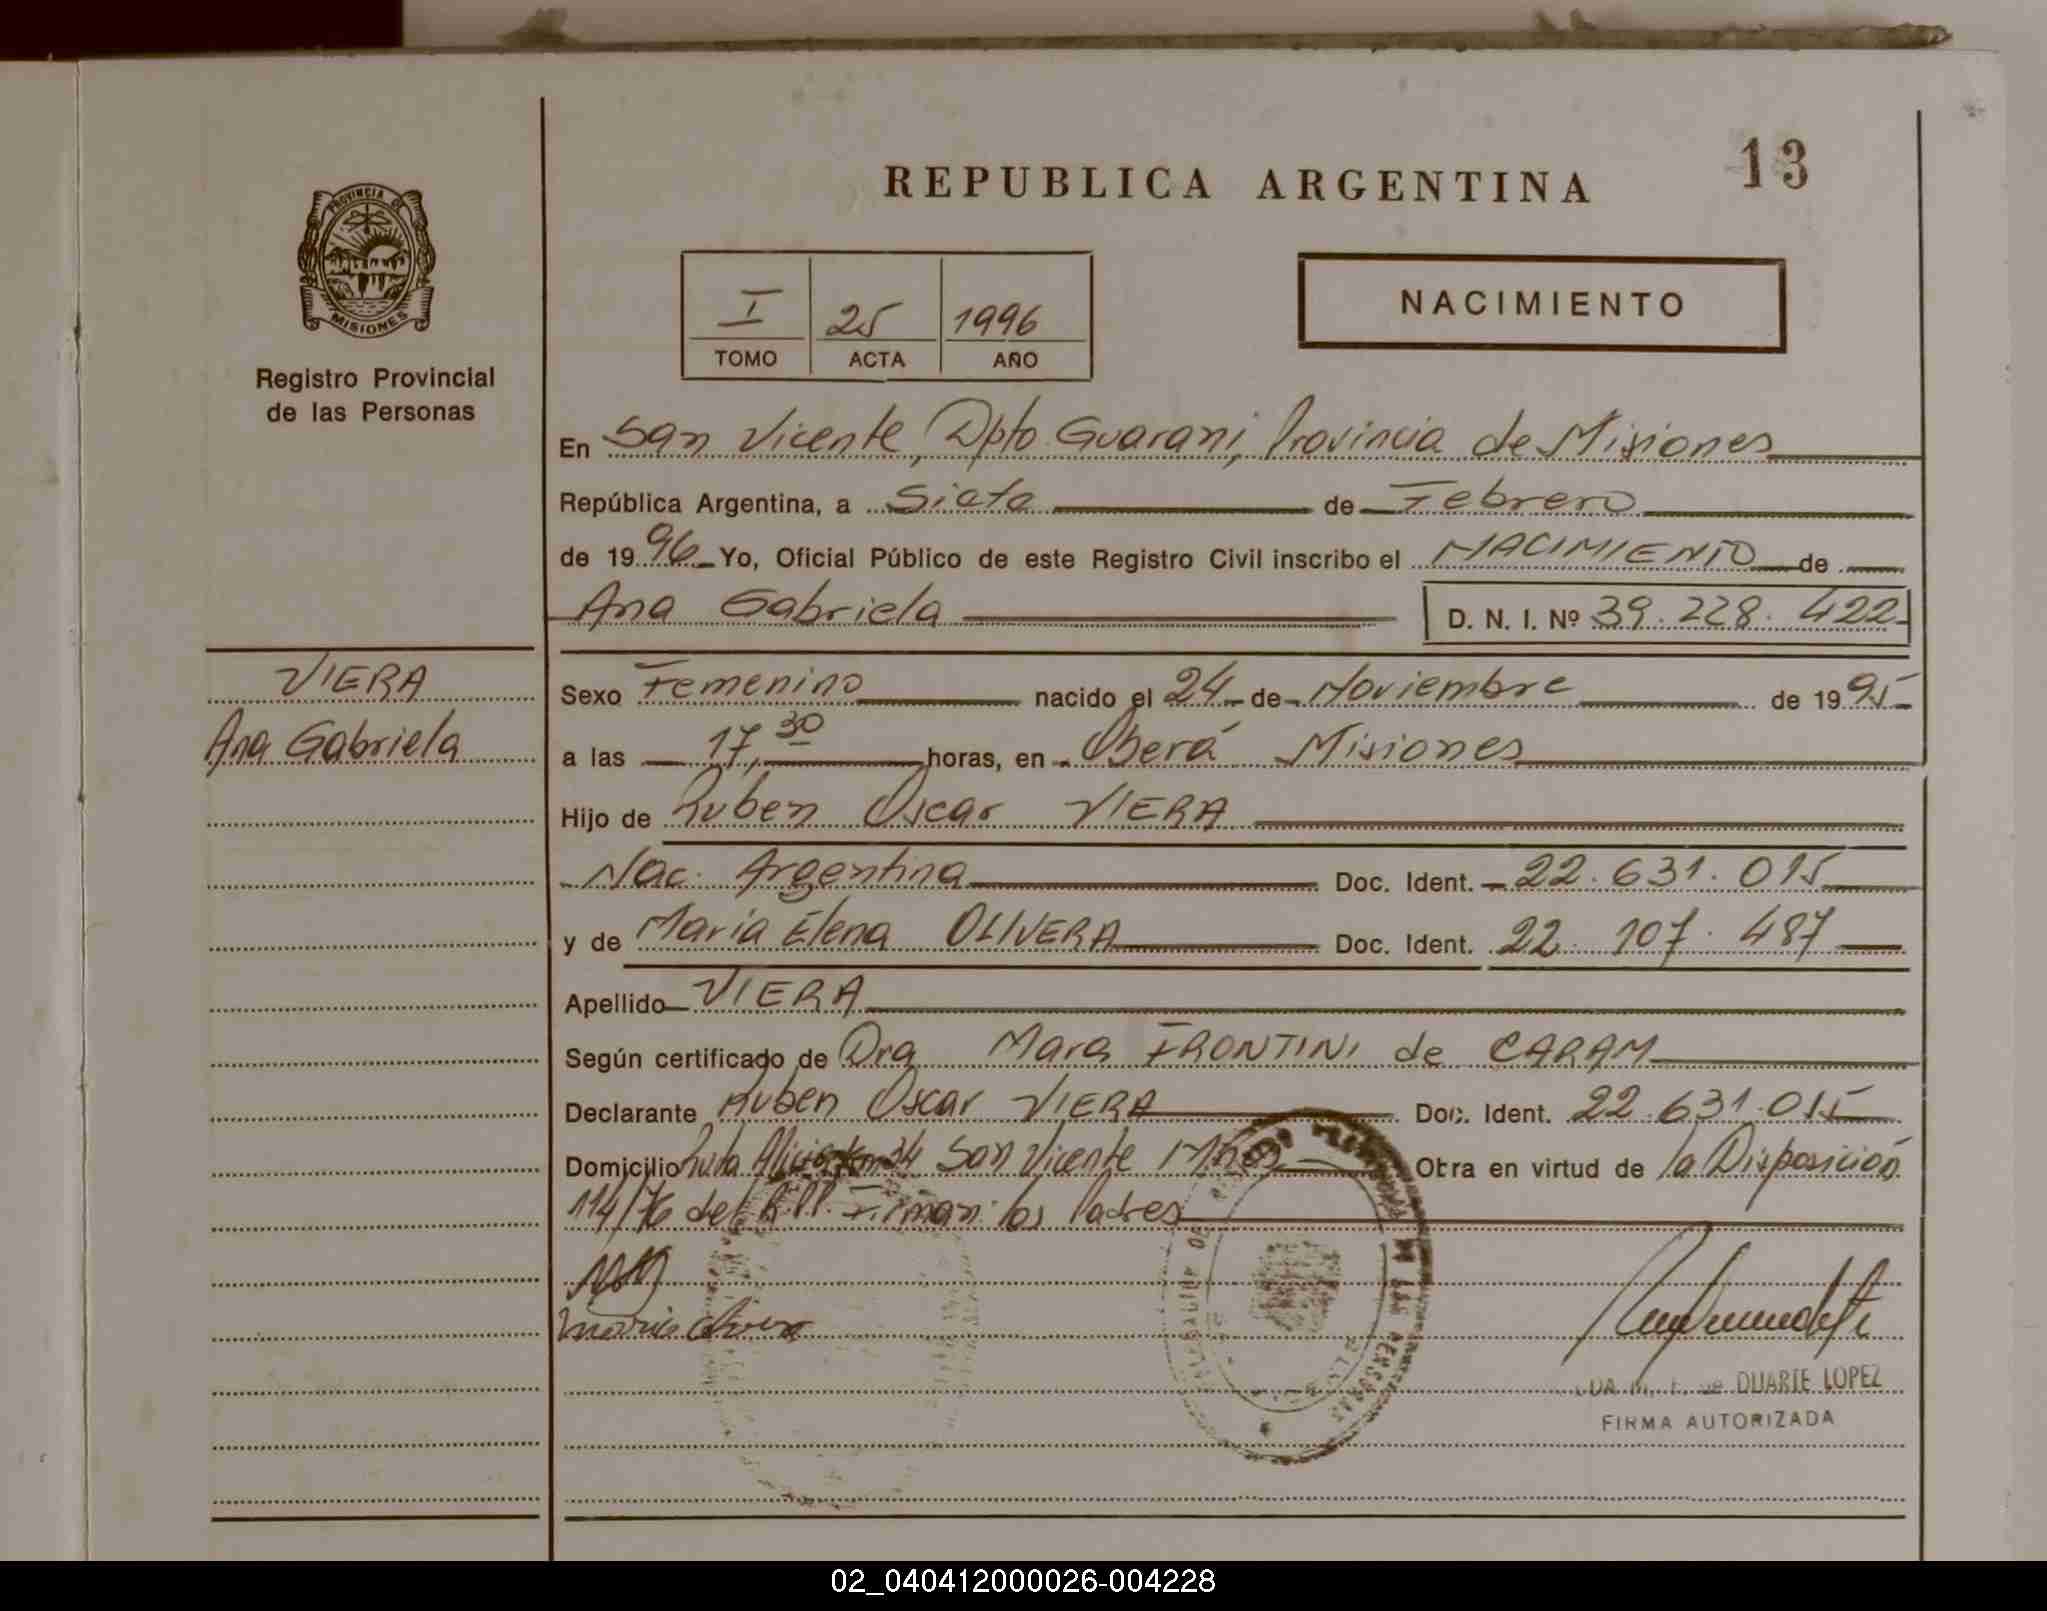 13
REPUBLICA ARGENTINA
PROVINCIA DE
MISIONES
Registro Provincial
de las Personas
I 25 1996
TOMO ACTA AÑO
NACIMIENTO
En San Vicente, Dpto Guarani, Provincia de Misiones
República Argentina, a Siete de Febrero
de 1996 Yo, Oficial Público de este Registro Civil inscribo el NACIMIENTO de
Ana Gabriela D. N. I. Nº 39.228.422
VIERA
Ana Gabriela
Sexo Femenino nacido el 24 de Noviembre de 1995
a las 17,30 horas, en Oberá Misiones
Hijo de Ruben Oscar VIERA
Nac. Argentina Doc. Ident. 22.631.015
y de Maria Elena OLIVERA Doc. Ident. 22.107.487
Apellido VIERA
Según certificado de Dra Mara FRONTINI de CARAM
Declarante Ruben Oscar VIERA Doc. Ident. 22.631.015
Domicilio Ruta Alicia km 34 San Vicente Mnes Obra en virtud de la Disposición
114/76 del R.P.P. Firman: los Padres
DUARTE LOPEZ
FIRMA AUTORIZADA
02_040412000026-004228